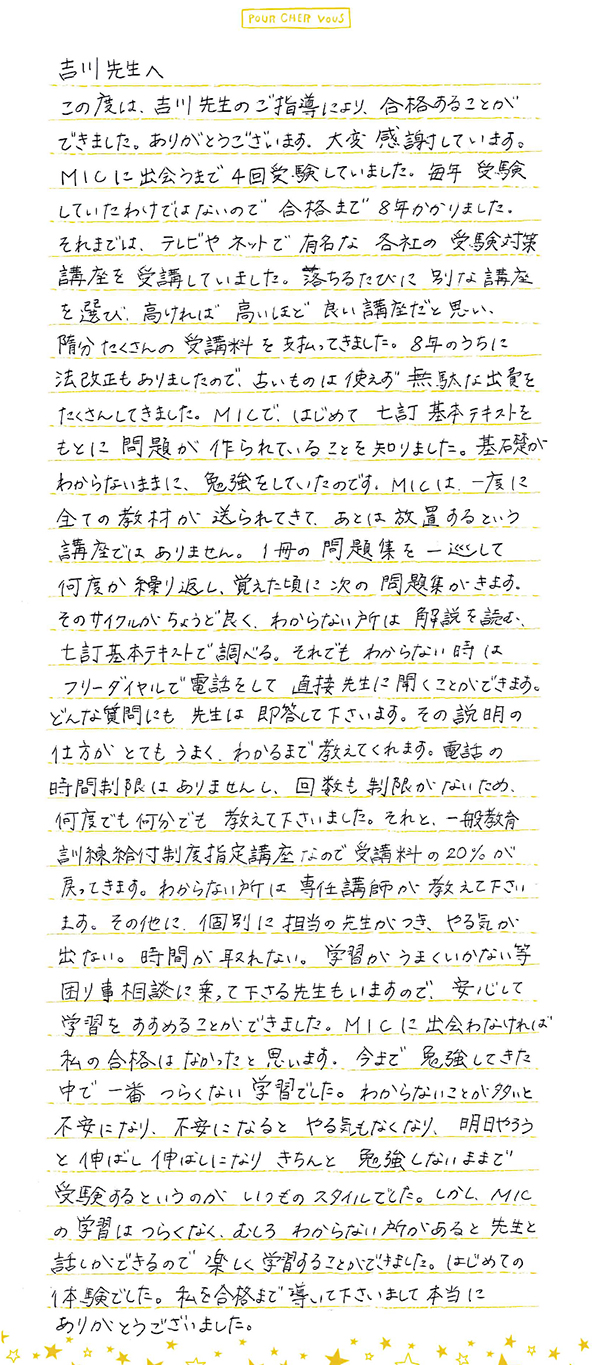 POUR CHER VOUS
吉川先生へ
この度は、吉川先生のご指導により、合格あることが
できました。ありがとうございます。大変感謝しています。
MICに出会うまで4回受験していました。毎年 受験
していたわけではないので 合格まで 8年かかりました。
それまでは、テレビや ネットで 有名な 各社の 受験対策
講座を 受講していました。落ちるたびに 別な講座
を選び、高ければ 高いほど 良い講座だと思い、
随分たくさんの 受講料を支払ってきました。8年のうちに
法改正もありましたので、古いものは使えず 無駄な出費を
たくさんしてきました。MICで、はじめて 七訂 基本テキストを
もとに 問題が 作られていることを知りました。基礎が
わからないままに、勉強をしていたのです。MICは、一度に
全ての教材が 送られてきて、あとは放置するという
講座ではありません。1冊の 問題集を 一巡して
何度か繰り返し、覚えた頃に 次の 問題集がきます。
そのサイクルがちょうど良く、わからない所は 解説を読む、
七訂基本テキストで調べる。それでも わからない時は
フリーダイヤルで電話をして 直接先生に聞くことができます。
どんな質問にも 先生は 即答して下さいます。その説明の
仕方が とても うまく、わかるまで教えてくれます。電話の
時間制限はありませんし、回数も制限がないため、
何度でも何分でも 教えて下さいました。それと、一般教育
訓練給付制度指定講座なので受講料の20%が
戻ってきます。わからない所は 専任講師が 教えて下さい
ます。その他に、個別に担当の先生がつき、やる気が
出ない。時間が取れない。学習がうまくいかない等
困り事相談に乗って下さる先生もいますので、安心して
学習をすすめることができました。MICに出会わなければ
私の合格はなかったと思います。今まで 勉強してきた
中で 一番 つらくない学習でした。わからないことが多いと
不安になり、不安になると やる気もなくなり、明日やろう
と伸ばし伸ばしになり きちんと 勉強しないままで
受験するというのが いつものスタイルでした。しかし、MIC
の学習はつらくなく、むしろ わからない所があると 先生と
話しができるので 楽しく学習することができました。はじめての
体験でした。私を合格まで導いて下さいまして本当に
ありがとうございました。